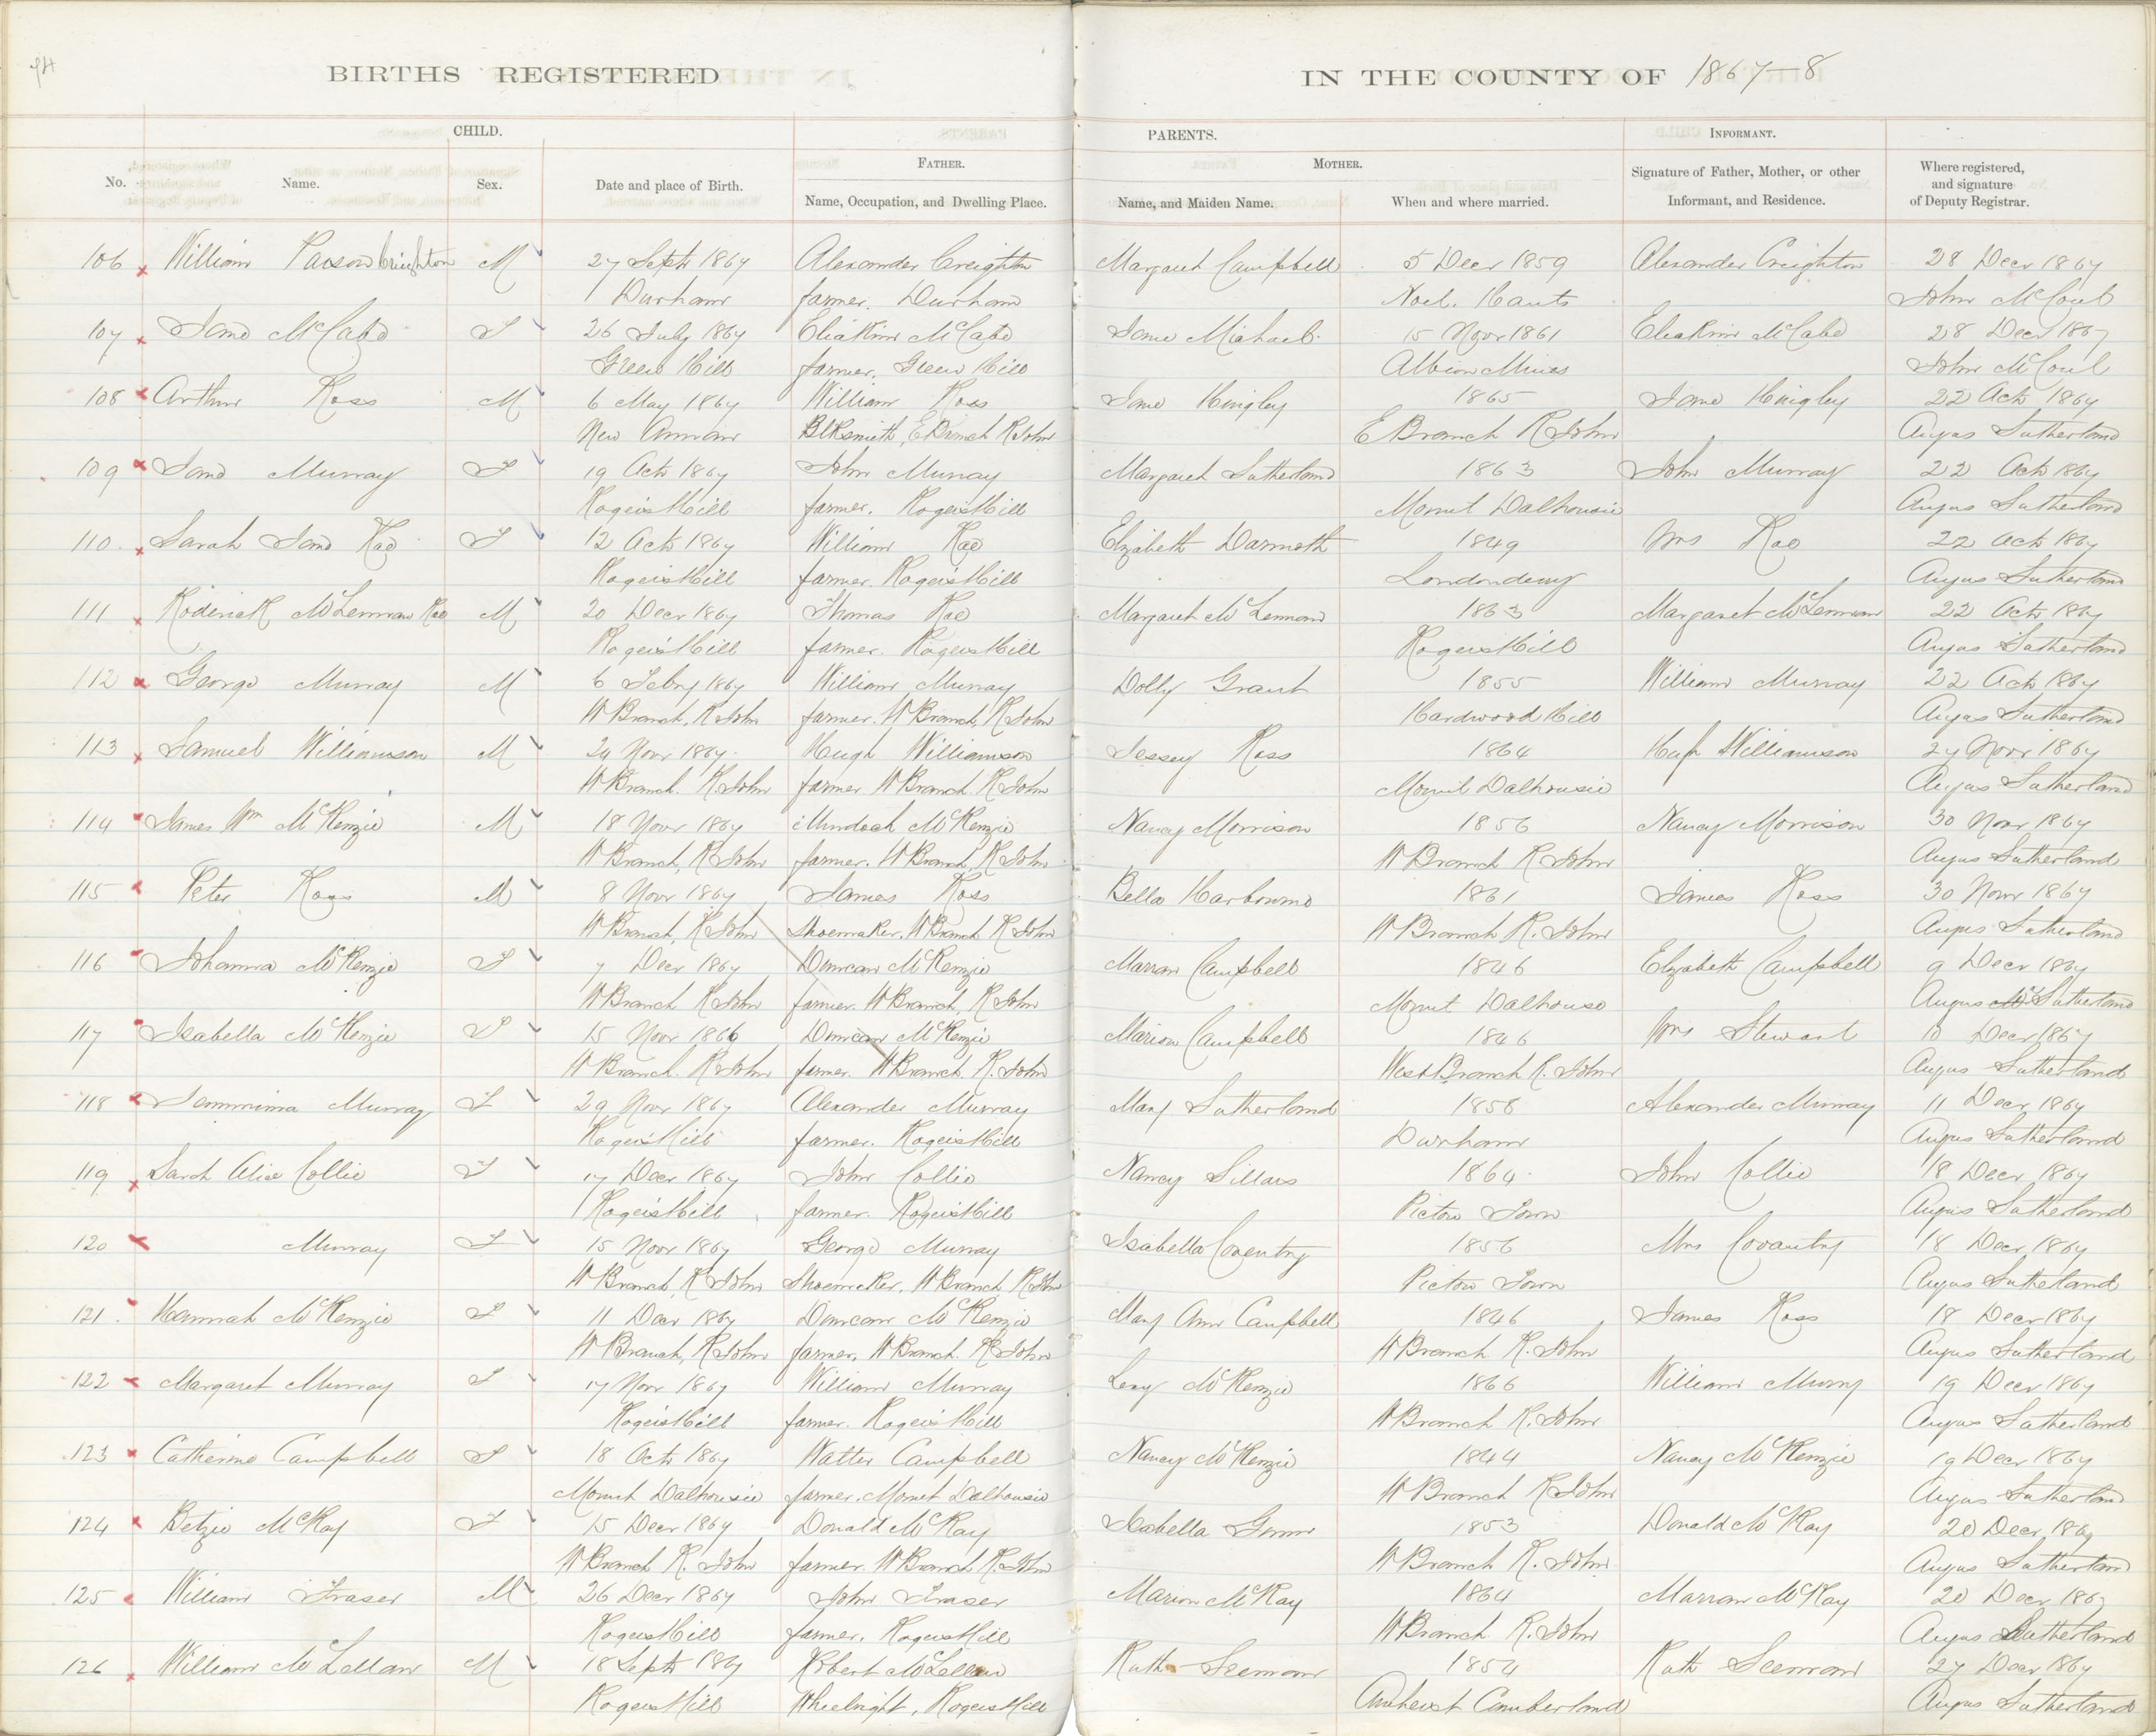 94
BIRTHS REGISTERED IN THE COUNTY OF 1867-8
CHILD. PARENTS. INFORMANT.
FATHER. MOTHER.
No. Name. Sex. Date and place of Birth. Name, Occupation, and Dwelling Place. Name, and Maiden Name. When and where married. Signature of Father, Mother, or other Informant, and Residence. Where registered, and signature of Deputy Registrar.
106 William Creighton M 27 Sept 1867 Alexander Creighton Margaret Campbell 5 Decr 1859 Alexander Creighton 28 Decr 1867
Durham farmer. Durham Noel. Hants John McCoul
107 Jane McCabe F 26 July 1867 Eliakim McCabe Jane Michael 15 Novr 1861 Eliakim McCabe 28 Decr 1867
Green Hill farmer. Green Hill Albion Mines John McCoul
108 Arthur Ross M 6 May 1867 William Ross Jane Hingley 1865 Jane Hingley 22 Oct 1867
New Annan Blksmith, E Branch R John E Branch R John Angus Sutherland
109 Jane Murray F 19 Oct 1867 John Murray Margaret Sutherland 1863 John Murray 22 Oct 1867
Rogers Hill farmer. Rogers Hill Mount Dalhousie Angus Sutherland
110 Sarah Jane Rae F 12 Oct 1867 William Rae Elizabeth 1849 Mrs Rae 22 Oct 1867
Rogers Hill farmer. Rogers Hill Londonderry Angus Sutherland
111 Roderick McLennan Rae M 20 Decr 1867 Thomas Rae Margaret McLennan 1863 Margaret McLennan 22 Oct 1867
Rogers Hill farmer. Rogers Hill Rogers Hill Angus Sutherland
112 George Murray M 6 Febry 1867 William Murray Dolly Grant 1855 William Murray 22 Oct 1867
W Branch, R John farmer. W Branch, R John Hardwood Hill Angus Sutherland
113 Samuel Williamson M 24 Novr 1867 Hugh Williamson Jessey Ross 1864 Hugh Williamson 27 Novr 1867
W Branch. R. John farmer W Branch. R John Mount Dalhousie Angus Sutherland
114 James Wm McKenzie M 18 Novr 1867 Murdoch McKenzie Nancy Morrison 1856 Nancy Morrison 30 Novr 1867
W Branch, R John farmer. W Branch, R John W Branch R John Angus Sutherland
115 Peter Ross M 8 Novr 1867 James Ross Bella 1861 James Ross 30 Novr 1867
W Branch, R John Shoemaker. W Branch R John W Branch R. John Angus Sutherland
116 Johanna McKenzie F 7 Decr 1867 Duncan McKenzie Marran Campbell 1846 Elizabeth Campbell 9 Decr 1867
W Branch R John farmer. W Branch, R John Mount Dalhouse Angus Sutherland
117 Isabella McKenzie F 15 Novr 1866 Duncan McKenzie Marion Campbell 1846 Mrs Stewart 10 Decr 1867
W Branch. R John farmer. W Branch. R. John West Branch R. John Angus Sutherland
118 Jemmima Murray F 29 Novr 1867 Alexander Murray Mary Sutherland 1858 Alexander Murray 11 Decr 1867
Rogers Hill farmer. Rogers Hill Durham Angus Sutherland
119 Sarah Alice Collie F 17 Decr 1867 John Collie Nancy Sillars 1864 John Collie 18 Decr 1867
Rogers Hill farmer. Rogers Hill Pictou Town Angus Sutherland
120 Murray F 15 Novr 1867 George Murray Isabella Coventry 1856 Mrs Covantry 18 Decr 1867
W Branch, R John Shoemaker. W Branch R John Pictou Town Angus Sutherland
121 Hannah McKenzie F 11 Decr 1867 Duncan McKenzie Mary Ann Campbell 1846 James Ross 18 Decr 1867
W Branch, R John farmer. W Branch. R John W Branch R. John Angus Sutherland
122 Margaret Murray F 17 Novr 1867 William Murray Lexy McKenzie 1866 William Murry 19 Decr 1867
Rogers Hill farmer. Rogers Hill W Branch R. John Angus Sutherland
123 Catherine Campbell F 18 Oct 1867 Walter Campbell Nancy McKenzie 1844 Nancy McKenzie 19 Decr 1867
Mount Dalhousie farmer. Mount Dalhousie W Branch R John Angus Sutherland
124 Betzie McKay F 15 Decr 1867 Donald McKay Isabella Gunn 1853 Donald McKay 20 Decr 1867
W Branch R. John farmer. W Branch R. John W Branch R. John Angus Sutherland
125 William Fraser M 26 Decr 1867 John Fraser Marion McKay 1864 Marran McKay 20 Decr 1867
Rogers Hill farmer. Rogers Hill W Branch R. John Angus Sutherland
126 William McLellan M 18 Sept 1867 Robert McLellan Ruth Seemore 1854 Ruth Seemore 27 Decr 1867
Rogers Hill Wheelright, Rogers Hill Amherst Cumberland Angus Sutherland